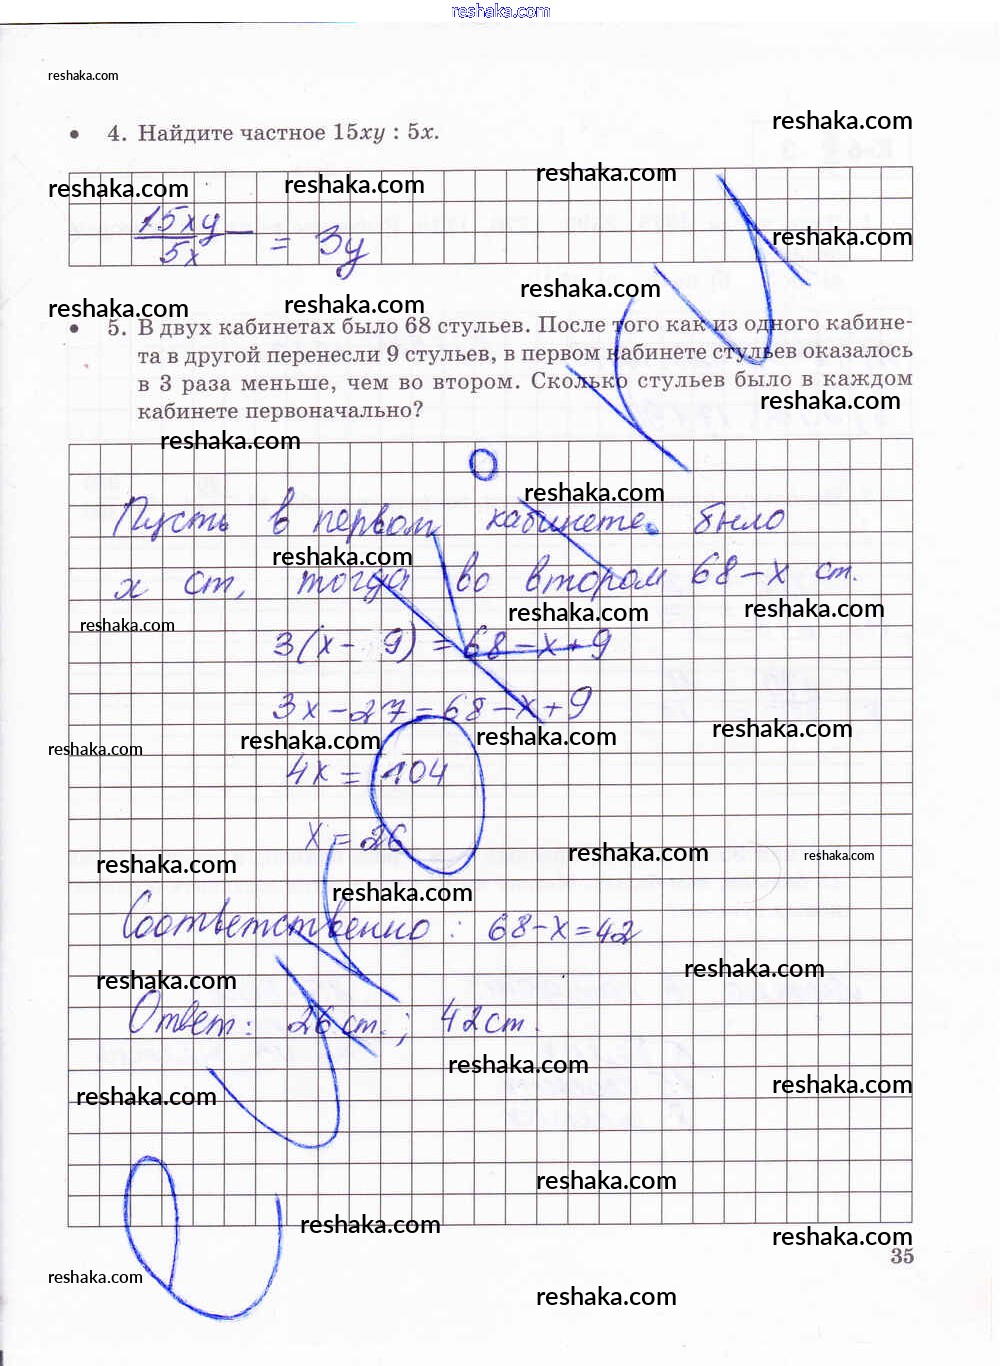 reshaka.com
reshaka.com
reshaka.com
• 4. Найдите частное 15xy : 5x.
reshaka.com
reshaka.com
reshaka.com
15xy
5x
= 3y
reshaka.com
reshaka.com
reshaka.com
reshaka.com
• 5. В двух кабинетах было 68 стульев. После того как из одного кабине-
та в другой перенесли 9 стульев, в первом кабинете стульев оказалось
в 3 раза меньше, чем во втором. Сколько стульев было в каждом
кабинете первоначально?
reshaka.com
reshaka.com
reshaka.com
Пусть в первом кабинете было
reshaka.com
x ст, тогда во втором 68-x ст.
reshaka.com
reshaka.com
reshaka.com
3(x- 9) = 68-x+9
3x-27=68-x+9
reshaka.com
reshaka.com
reshaka.com
reshaka.com
4x = 104
x = 26
reshaka.com
reshaka.com
reshaka.com
reshaka.com
Соответственно : 68-x=42
reshaka.com
reshaka.com
Ответ: 26 ст.; 42 ст.
reshaka.com
reshaka.com
reshaka.com
reshaka.com
reshaka.com
reshaka.com
35
reshaka.com
reshaka.com